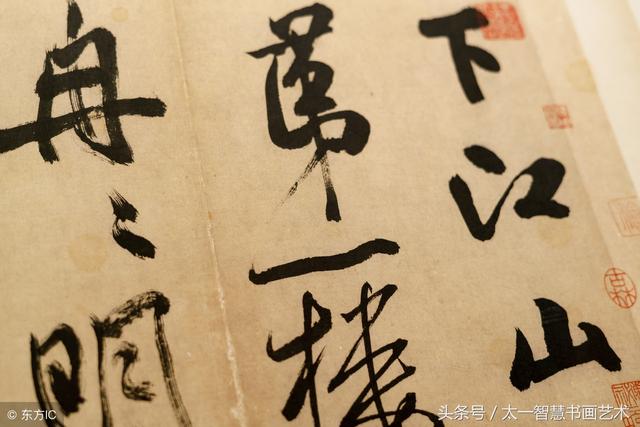 下江山
第一樓
冉〻明
© 东方IC
头条号 / 太一智慧书画艺术